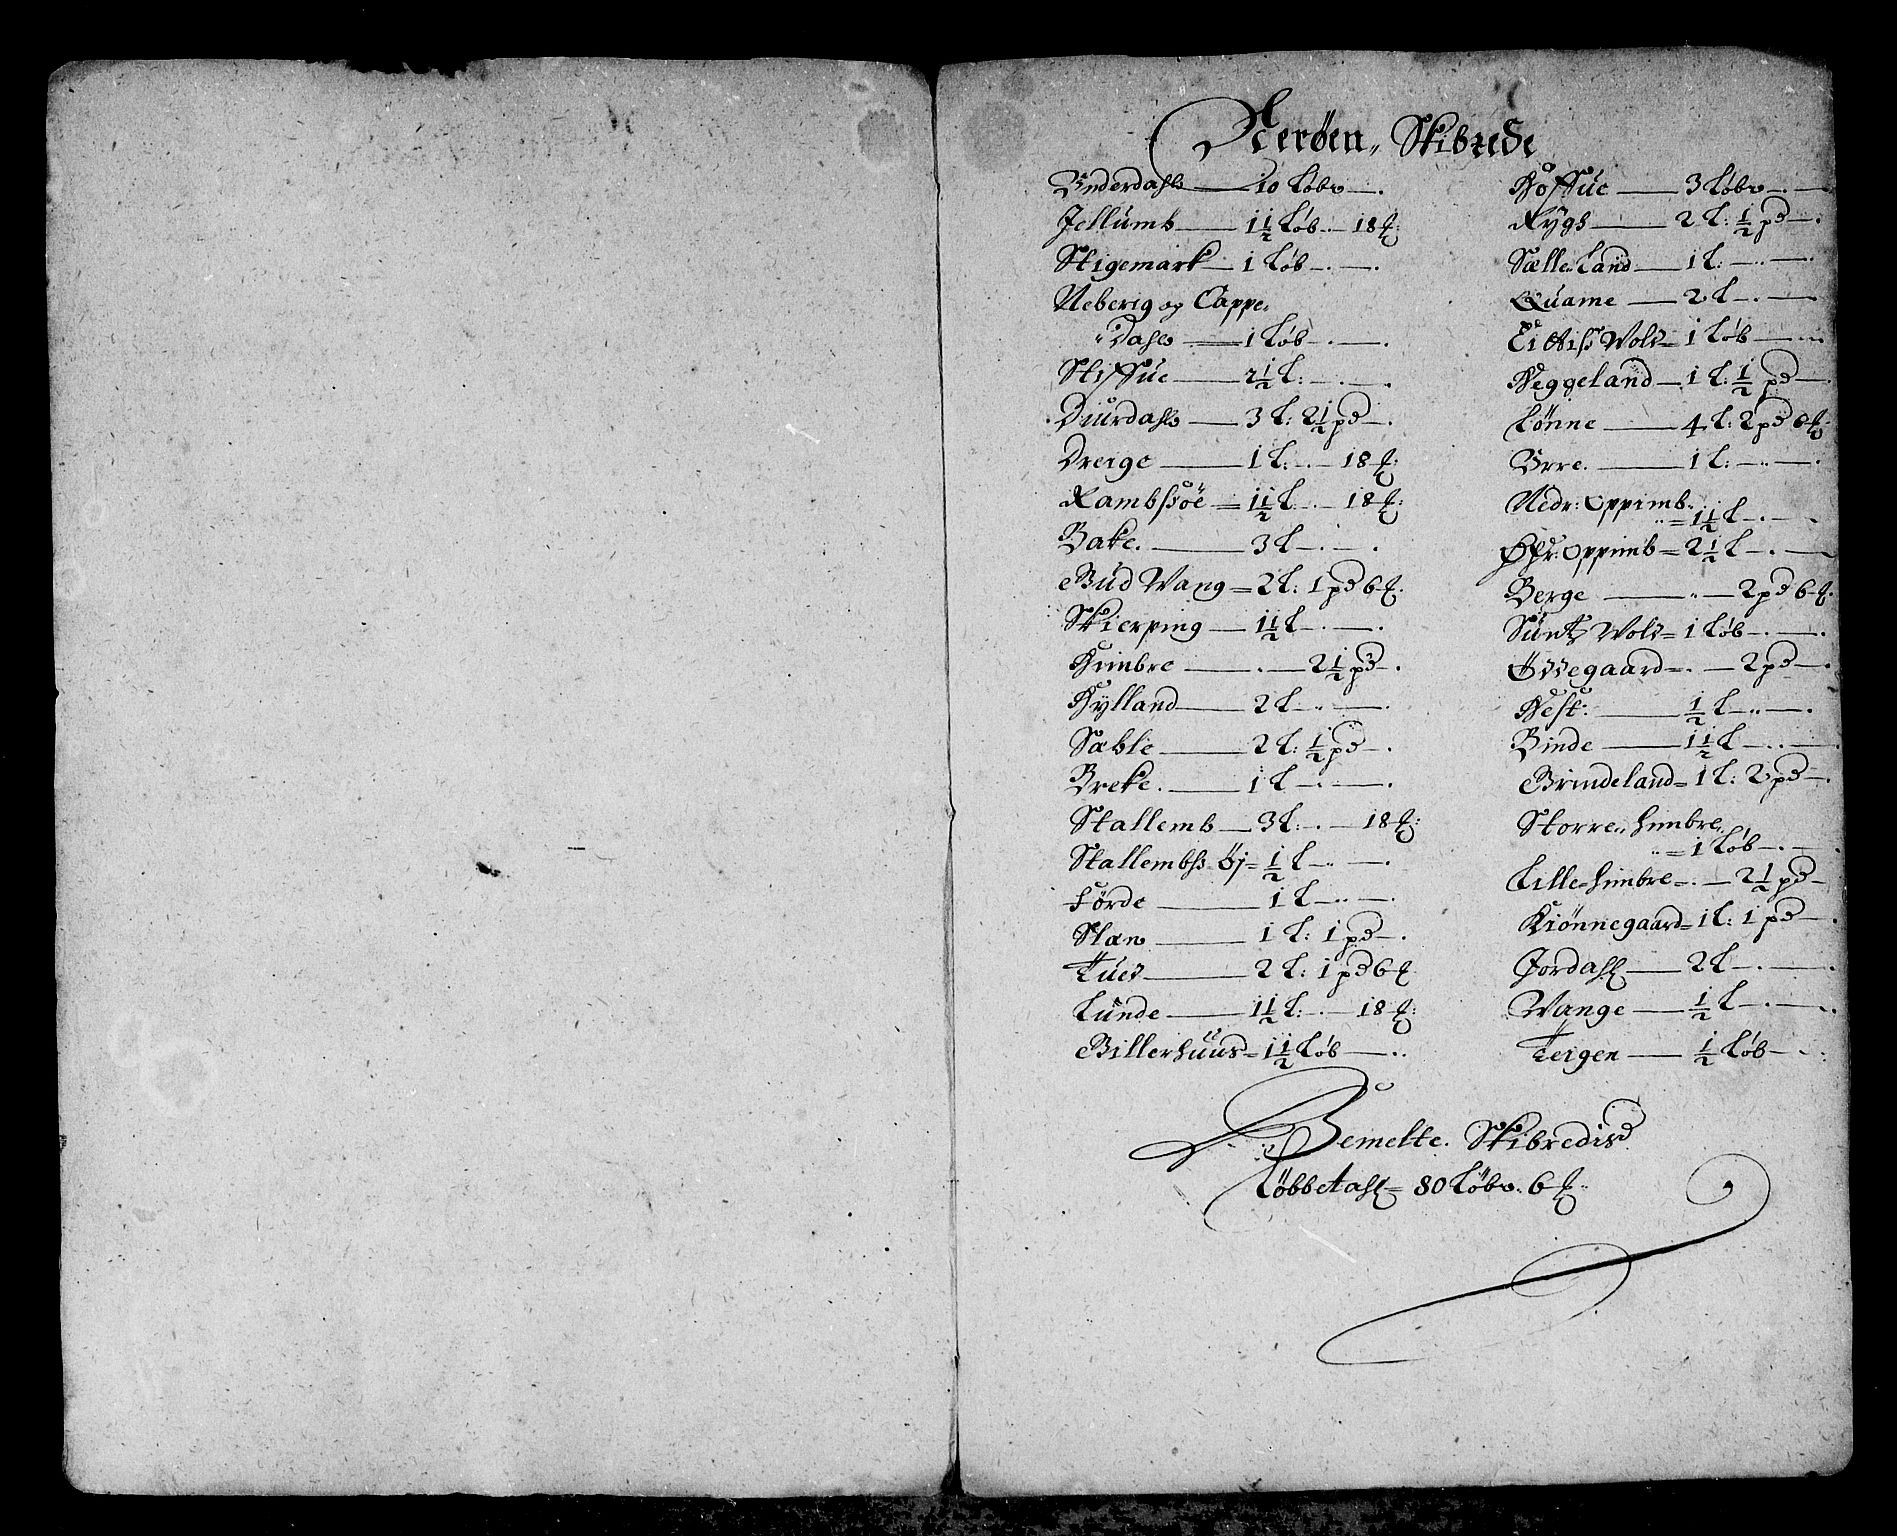 Nerøen Skibrede
Underdahl 10 Løber
Jellumb 1 1/2 Løb 18 ℔:
Stigemark 1 Løb
Neberig og Cappe
Dahl 1 Løb
Stiffue 2 1/2 L:
Diurdahl 3 L: 2 1/2 pd
Dreige 1 L: 18 ℔:
Rambsøe 1 1/2 L 18 ℔:
Bake. 3 L
Bud Wang 2 L: 1 pd 6 ℔.
Skierping 1 1/2 L
Himbre 2 1/2 pd
Hylland 2 L
Sæble 2 L: 1/2 pd
Breke. 1 L
Stallemb 3 L: 18 ℔:
Stallembs Øj 1/2 L
Førde 1 L
Slæn 1 L: 1 pd
Tuet 2 L: 1 pd 6 ℔
Lunde 1 1/2 L: 18 ℔:
Billerhuus 1 1/2 Løb
Hoffue 3 Løber
Rygh 2 L: 1/2 pd
Sælle Land 1 L:
Quame 2 L
Wold 1 Løb
Heggeland 1 L: 1/2 pd
Lønne 4 L: 2 pd 6 ℔
Urre. 1 L:
Nedr: Oppimb
1 1/2 L
Øfr: Oppimb 2 1/2 L
Berge 2 pd 6 ℔.
Sundts Wold 1 Løb
Øffregaard 2 pd
Hest: 1/2 L
Binde 1 1/2 L
Brindeland 1 L: 2 pd
Storre himbre
1 Løb
Lille himbre 2 1/2 pd
Kiønnegaard 1 L: 1 pd
Jordahl 2 L
Wange 1/2 L
Teigen 1/2 Løb
Bemelte Skibredis
Løbbetahl 80 Løber 6 ℔